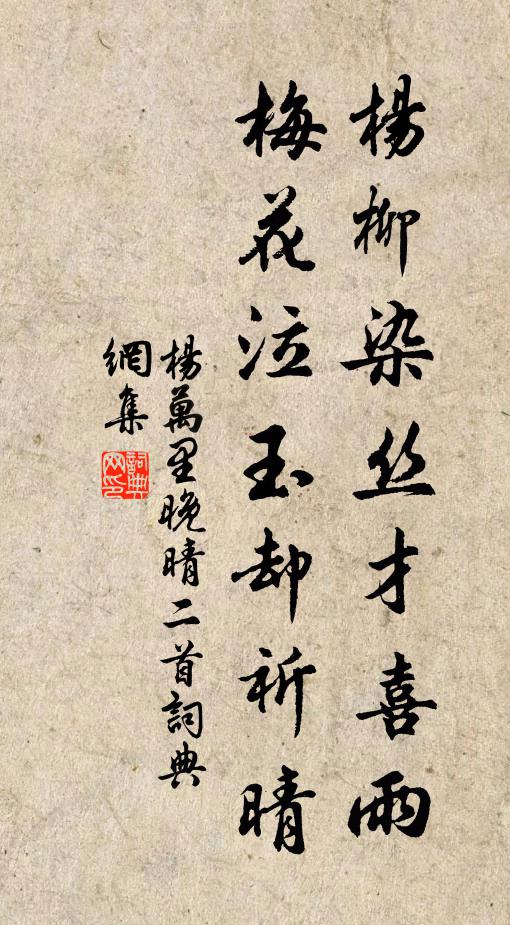 楊柳染丝才喜雨
梅花泣玉却祈晴
楊萬里晚晴二首詞典
網集
詞典
网印